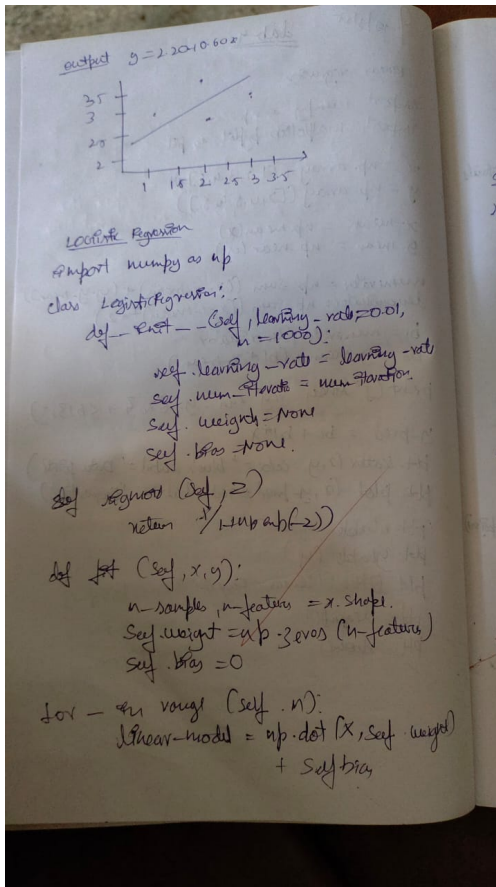 output y = 2.20+0.60x
3.5
3
2.5
2
1 1.5 2 2.5 3 3.5
Logistic Regression
import numpy as np
class LogisticRegression:
def __init__(self, learning_rate=0.01,
n = 1000):
self.learning_rate = learning_rate
self.num_iterate = num iteration
self.weights=None
self.bias=None.
def sigmoid (self, z)
return 1/1+np exp(-z))
def fit (self, x, y):
n_samples, n_features = x.shape.
self.weight = np.zeros (n_features)
self.bias = 0
for _ in range (self.n):
linear_model = np.dot(x, self.weight)
+ self bias